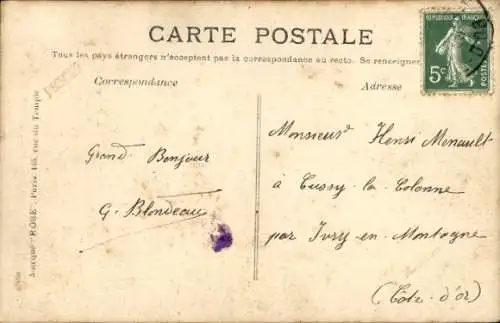 CARTE POSTALE
Tous les pays étrangers n'acceptent pas la correspondance au recto. Se renseigner
Correspondance
Adresse
RÉPUBLIQUE FRANÇAISE
5c
POSTES
Grand Bonjour
G. Blondeau
Monsieur Henri Menault
à Cussy-la-Colonne
par Ivry-en-Montagne
(Côte-d'Or)
Marque "ROSE", Paris, 146, rue du Temple